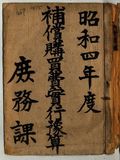 昭和四年度
補償購買費實行豫算
庶務課